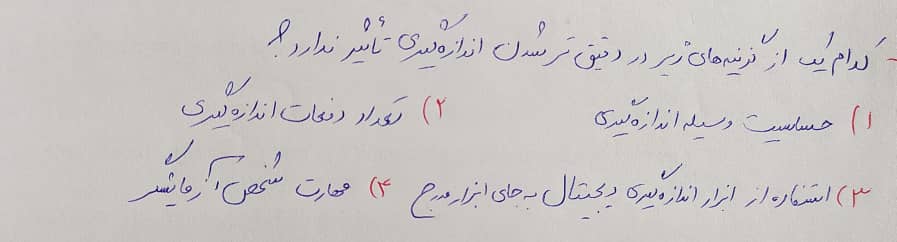 - کدام یک از گزینه‌های زیر در دقیق تر شدن اندازه‌گیری تأثیر ندارد؟
۱) حساسیت وسیله اندازه‌گیری ۲) تعداد دفعات اندازه‌گیری
۳) استفاده از ابزار اندازه‌گیری دیجیتال به جای ابزار مدرج ۴) مهارت شخص آزمایشگر